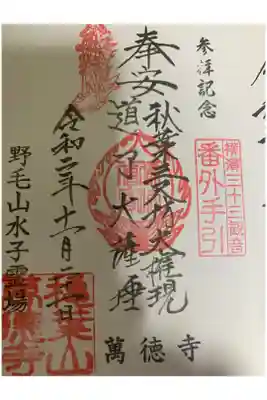 参拝記念
横濱三十三観音
番外手引
奉安 秋葉三尺坊大権現
道了大薩埵
令和二年十一月二十一日
野毛山水子霊場
萬德寺
秋葉山
萬德寺